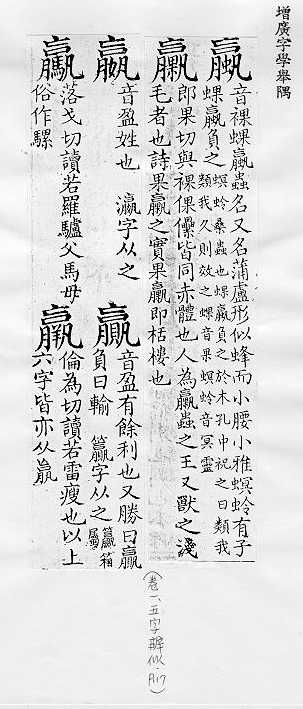 增廣字學舉隅
蠃
音裸蜾蠃蟲名又名蒲盧形似蜂而小腰小雅螟蛉有子
蜾蠃負之
螟蛉桑蟲也蜾蠃負之於木孔中祝之曰類我
類我久則效之蜾音果螟蛉音冥靈
臝
郎果切與裸倮儽皆同赤體也人為臝蟲之王又獸之淺
毛者也詩果臝之實果臝即栝樓也
嬴
音盈姓也 瀛字从之
贏
音盈有餘利也又勝曰贏
負曰輸 籯字从之
籯箱
屬
驘
落戈切讀若羅驢父馬母
俗作騾
羸
倫為切讀若雷瘦也以上
六字皆亦从𣎆
(卷一、五字辨似、